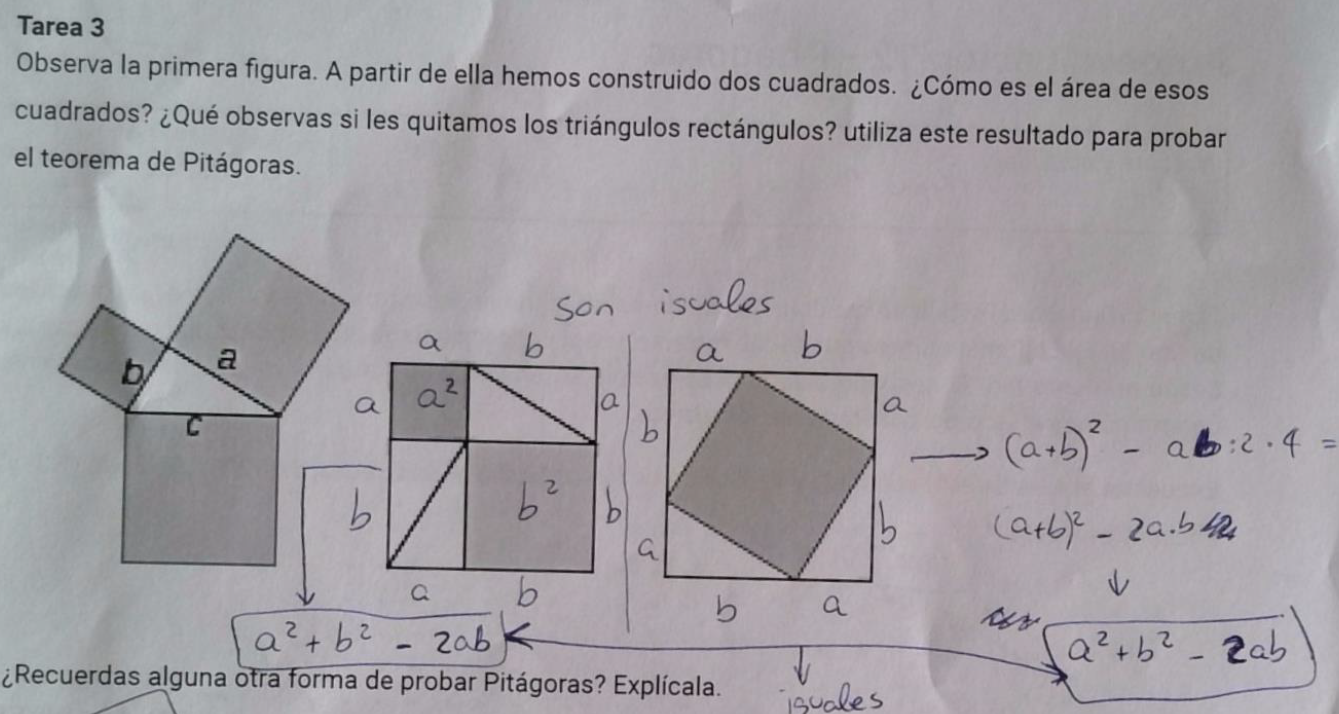 Tarea 3
Observa la primera figura. A partir de ella hemos construido dos cuadrados. ¿Cómo es el área de esos
cuadrados? ¿Qué observas si les quitamos los triángulos rectángulos? utiliza este resultado para probar
el teorema de Pitágoras.
son iguales
b a
c
a b
a a² a
b b² b
a b
a b
b a
a b
b a
→ (a+b)² - ab:2·4 =
(a+b)² - 2a·b
↓
a² + b² - 2ab
a² + b² - 2ab
iguales
¿Recuerdas alguna otra forma de probar Pitágoras? Explícala.